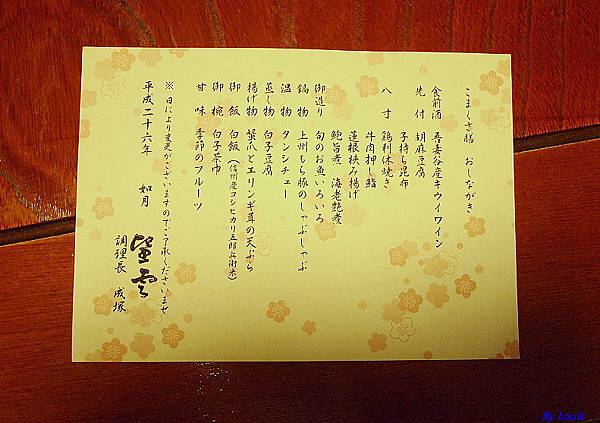 こまくさ膳　おしながき
食前酒　吾妻谷産キウイワイン
先付　胡麻豆腐
子持ち昆布
八寸　鶏利休焼き
牛肉押し鮨
蓮根挟み揚げ
鮑旨煮　海老艶煮
御造り　旬のお魚いろいろ
鍋物　上州もち豚のしゃぶしゃぶ
温物　タンシチュー
蒸し物　白子豆腐
揚げ物　蟹爪とエリンギ茸の天ぷら
御飯　白飯（信州産コシヒカリ五郎兵衛米）
御椀　白子茶巾
甘味　季節のフルーツ
※日により変更がございますのでご了承くださいませ
平成二十六年　如月
望雲
調理長　成塚
By Louis